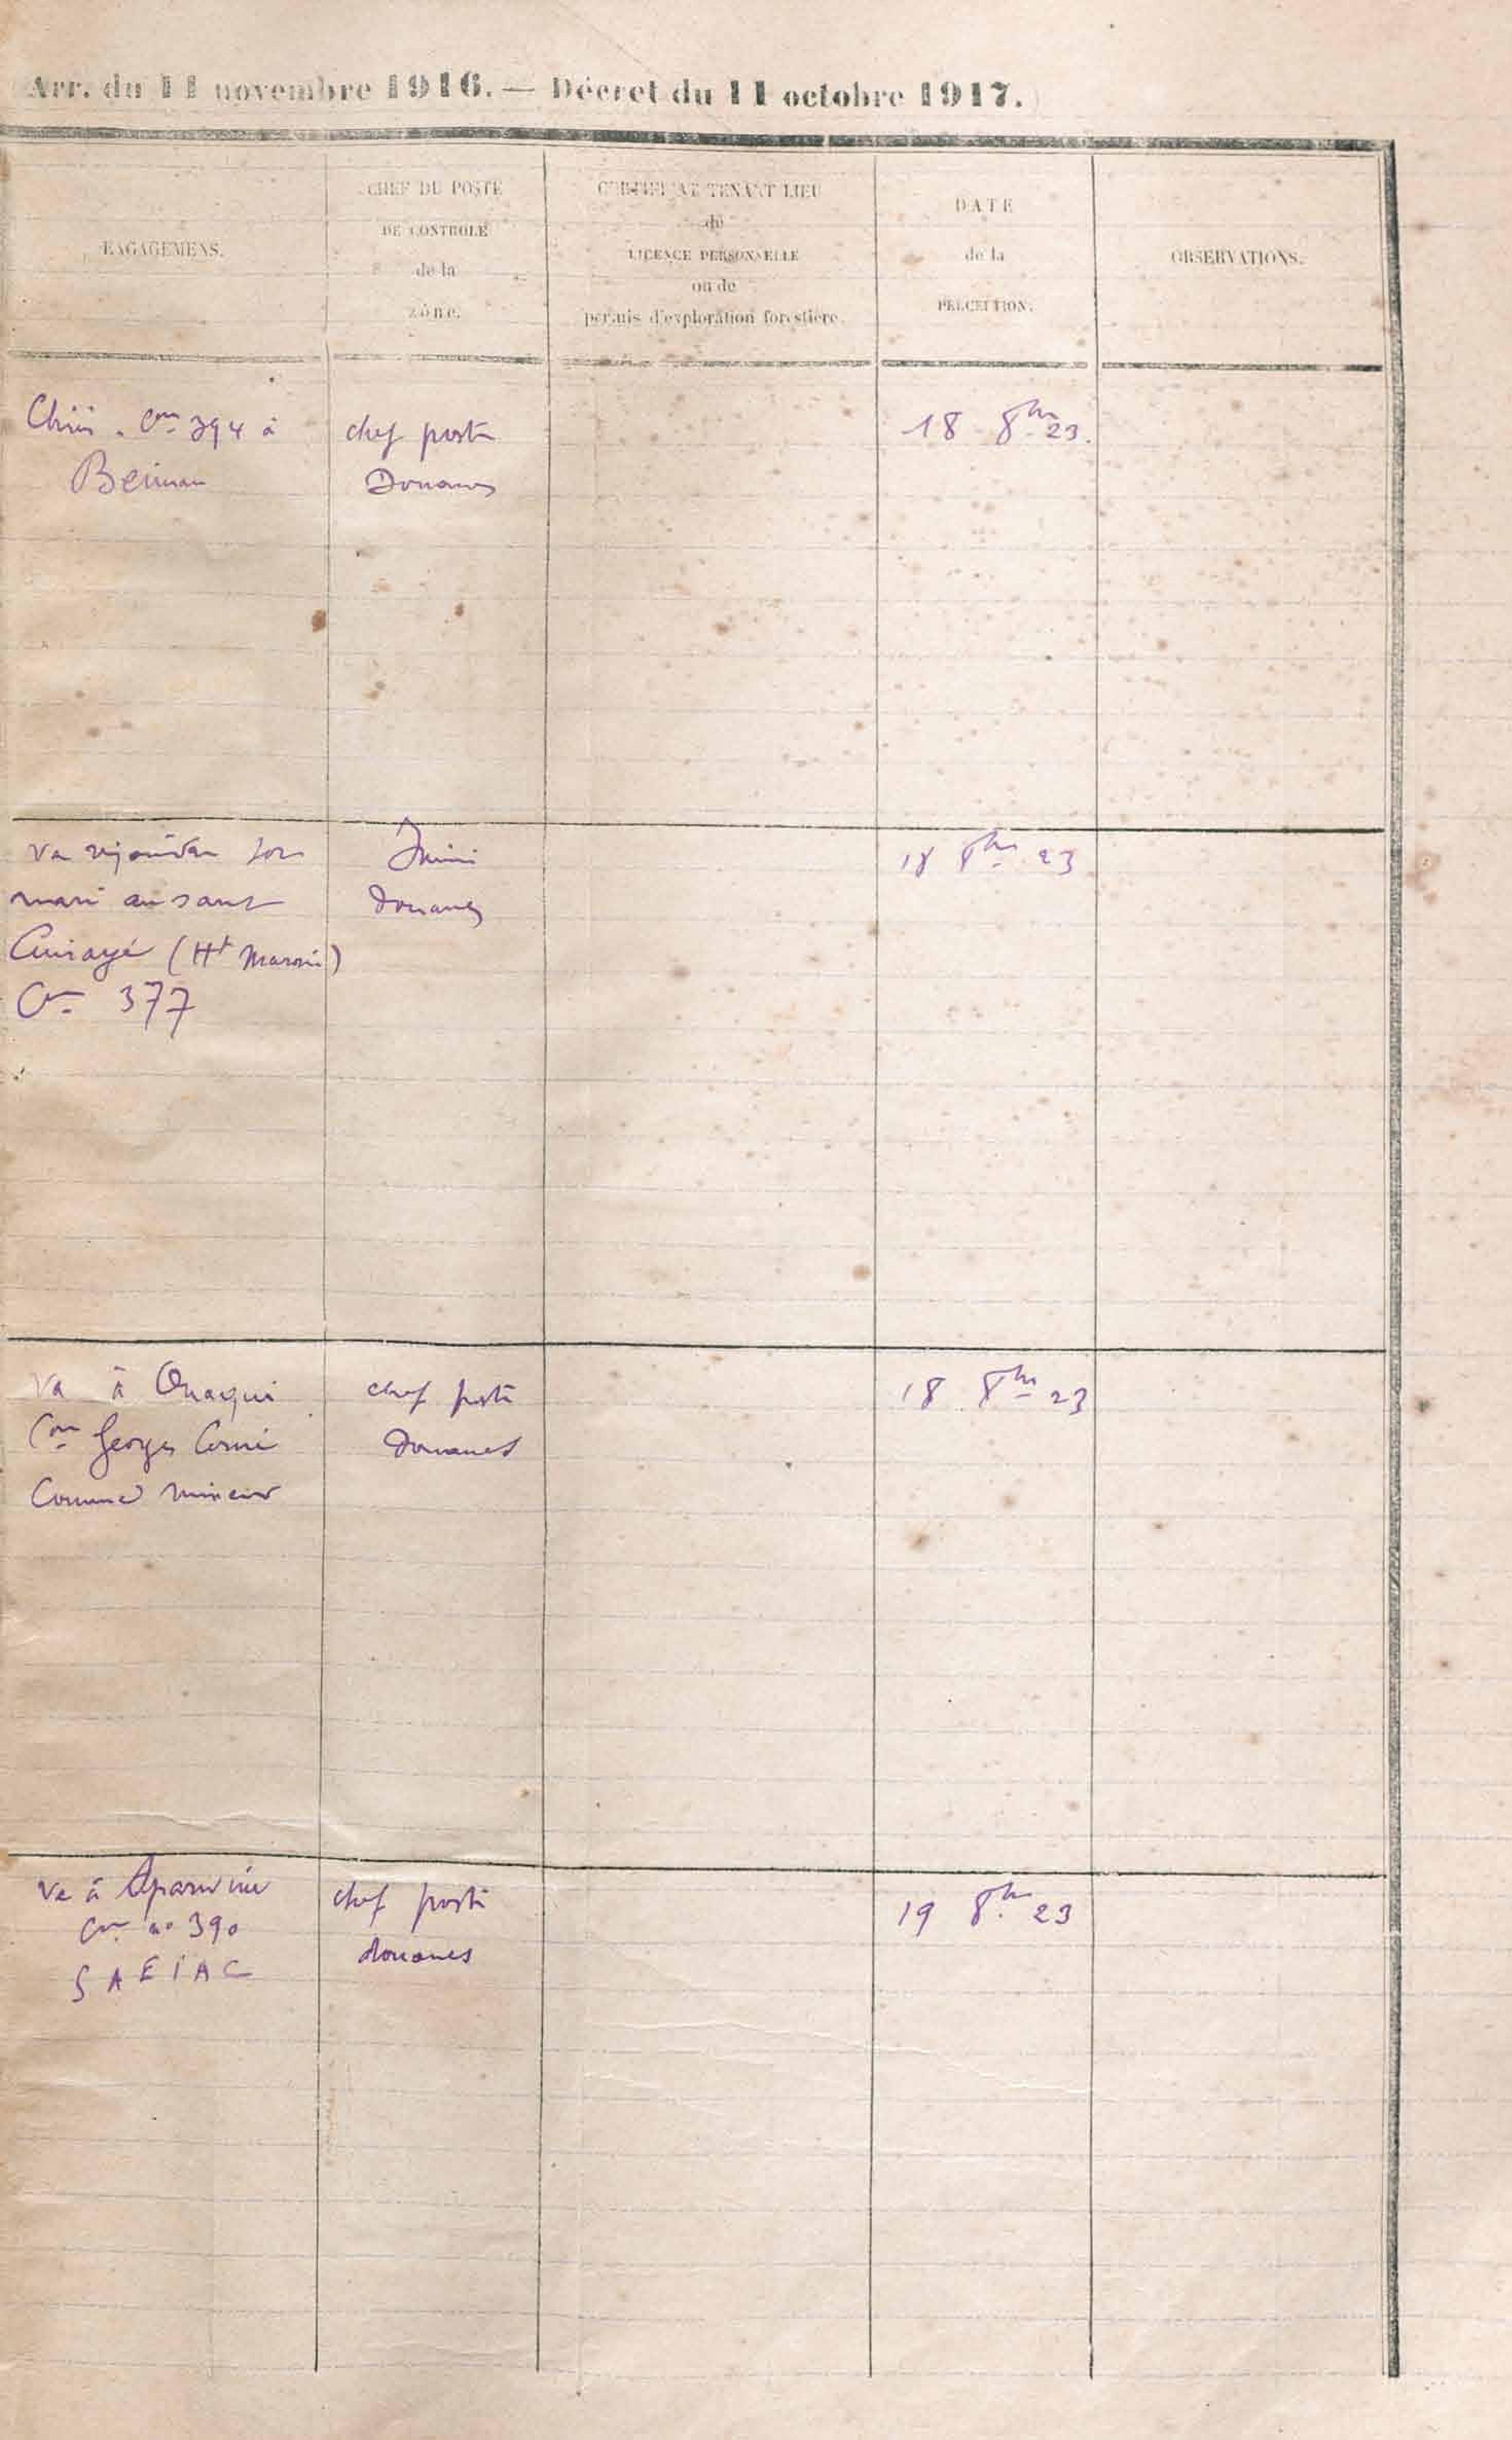 Arr. du 11 novembre 1916. — Décret du 11 octobre 1917.
ENGAGEMENS.
CHEF DU POSTE
DE CONTROLE
de la
zône.
CERTIFICAT TENANT LIEU
de
LICENCE PERSONNELLE
ou de
permis d'exploration forestière.
DATE
de la
PERCEPTION.
OBSERVATIONS.
Con 394 à
Beiman
chef poste
Douanes
18 8bre 23.
va rejoindre son
mari au saut
(Ht Maroni)
Con 377
Inini
douanes
18 8bre 23
va à Ouaqui
Con Georges Corni
comme mineur
chef poste
douanes
18 8bre 23
va à
Con no 390
SAEIAC
chef poste
douanes
19 8bre 23